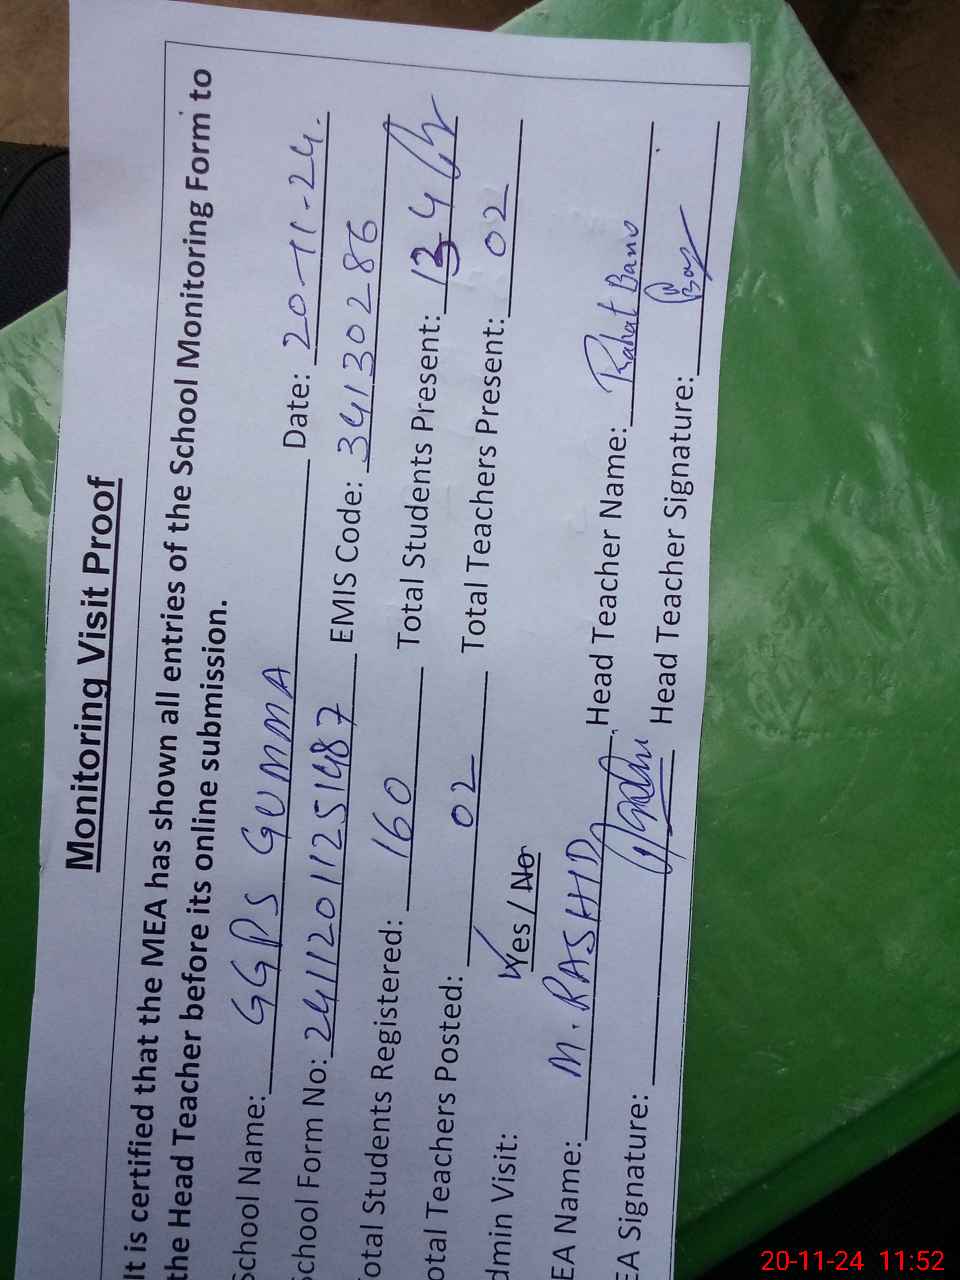 Monitoring Visit Proof
It is certified that the MEA has shown all entries of the School Monitoring Form to
the Head Teacher before its online submission.
School Name: GGPS GUMMA Date: 20-11-24.
School Form No: 241120112251487 EMIS Code: 34130286
Total Students Registered: 160 Total Students Present: 134
otal Teachers Posted: 02 Total Teachers Present: 02
dmin Visit: Yes / No
EA Name: M. RASHID Head Teacher Name: Rahat Bano
EA Signature: Head Teacher Signature:
20-11-24 11:52